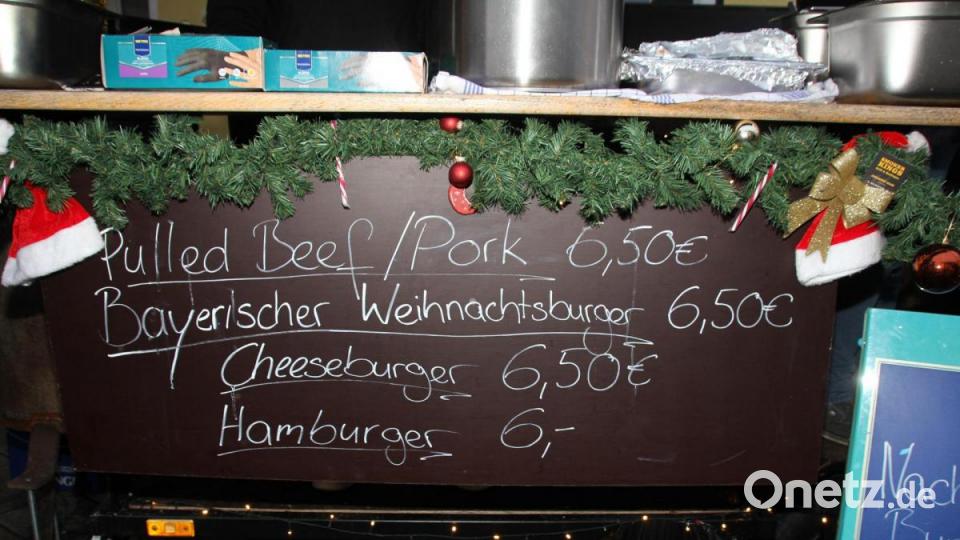 Pulled Beef/Pork 6,50€
Bayerischer Weihnachtsburger 6,50€
Cheeseburger 6,50€
Hamburger 6,-
Onetz.de